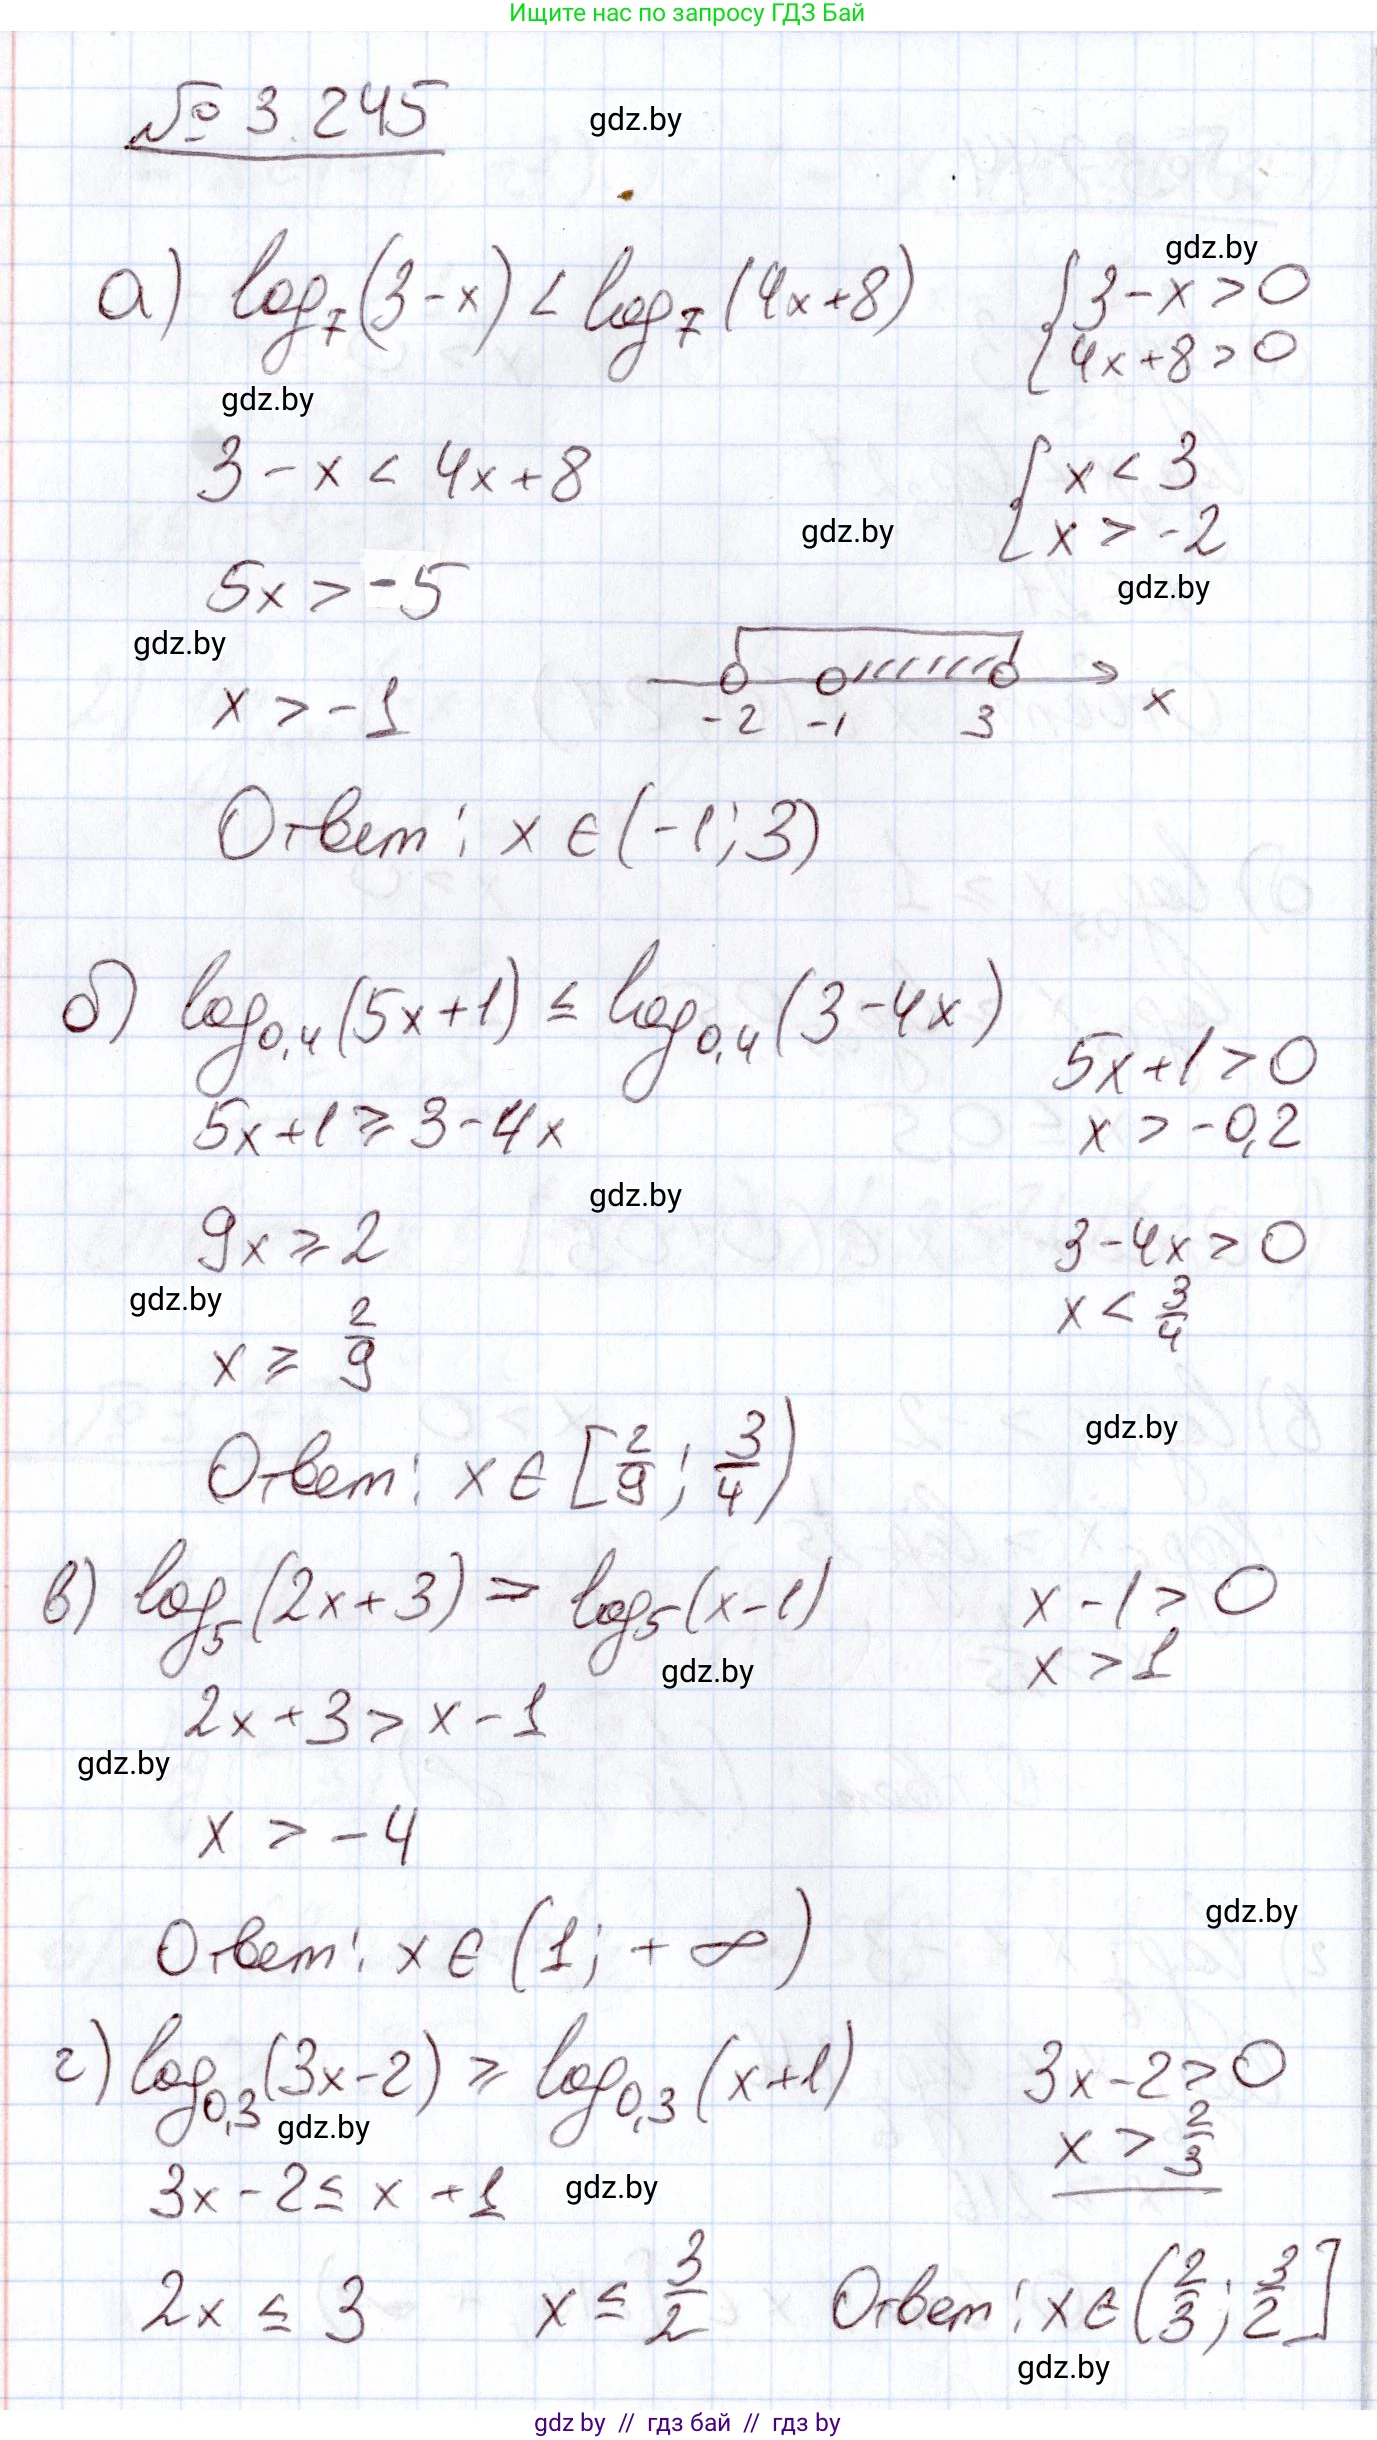 Ищите нас по запросу ГДЗ Бай
№ 3.245
gdz.by
а) log₇(3-x) < log₇(4x+8)
gdz.by
{3-x>0
{4x+8>0
gdz.by
3-x < 4x+8
{x < 3
{x > -2
gdz.by
gdz.by
5x > -5
gdz.by
x > -1
-2 -1 3 x
Ответ: x ∈ (-1; 3)
б) log₀,₄(5x+1) ≤ log₀,₄(3-4x)
5x+1>0
5x+1 ≥ 3-4x
x > -0,2
gdz.by
9x ≥ 2
3-4x > 0
gdz.by
x < 3/4
x ≥ 2/9
gdz.by
Ответ: x ∈ [2/9; 3/4)
в) log₅(2x+3) > log₅(x-1)
x-1 > 0
gdz.by
x > 1
2x+3 > x-1
gdz.by
x > -4
gdz.by
Ответ: x ∈ (1; +∞)
г) log₀,₃(3x-2) ≥ log₀,₃(x+1)
3x-2>0
gdz.by
x > 2/3
3x-2 ≤ x+1
gdz.by
2x ≤ 3 x ≤ 3/2 Ответ: x ∈ (2/3; 3/2]
gdz.by
gdz by // гдз бай // гдз by